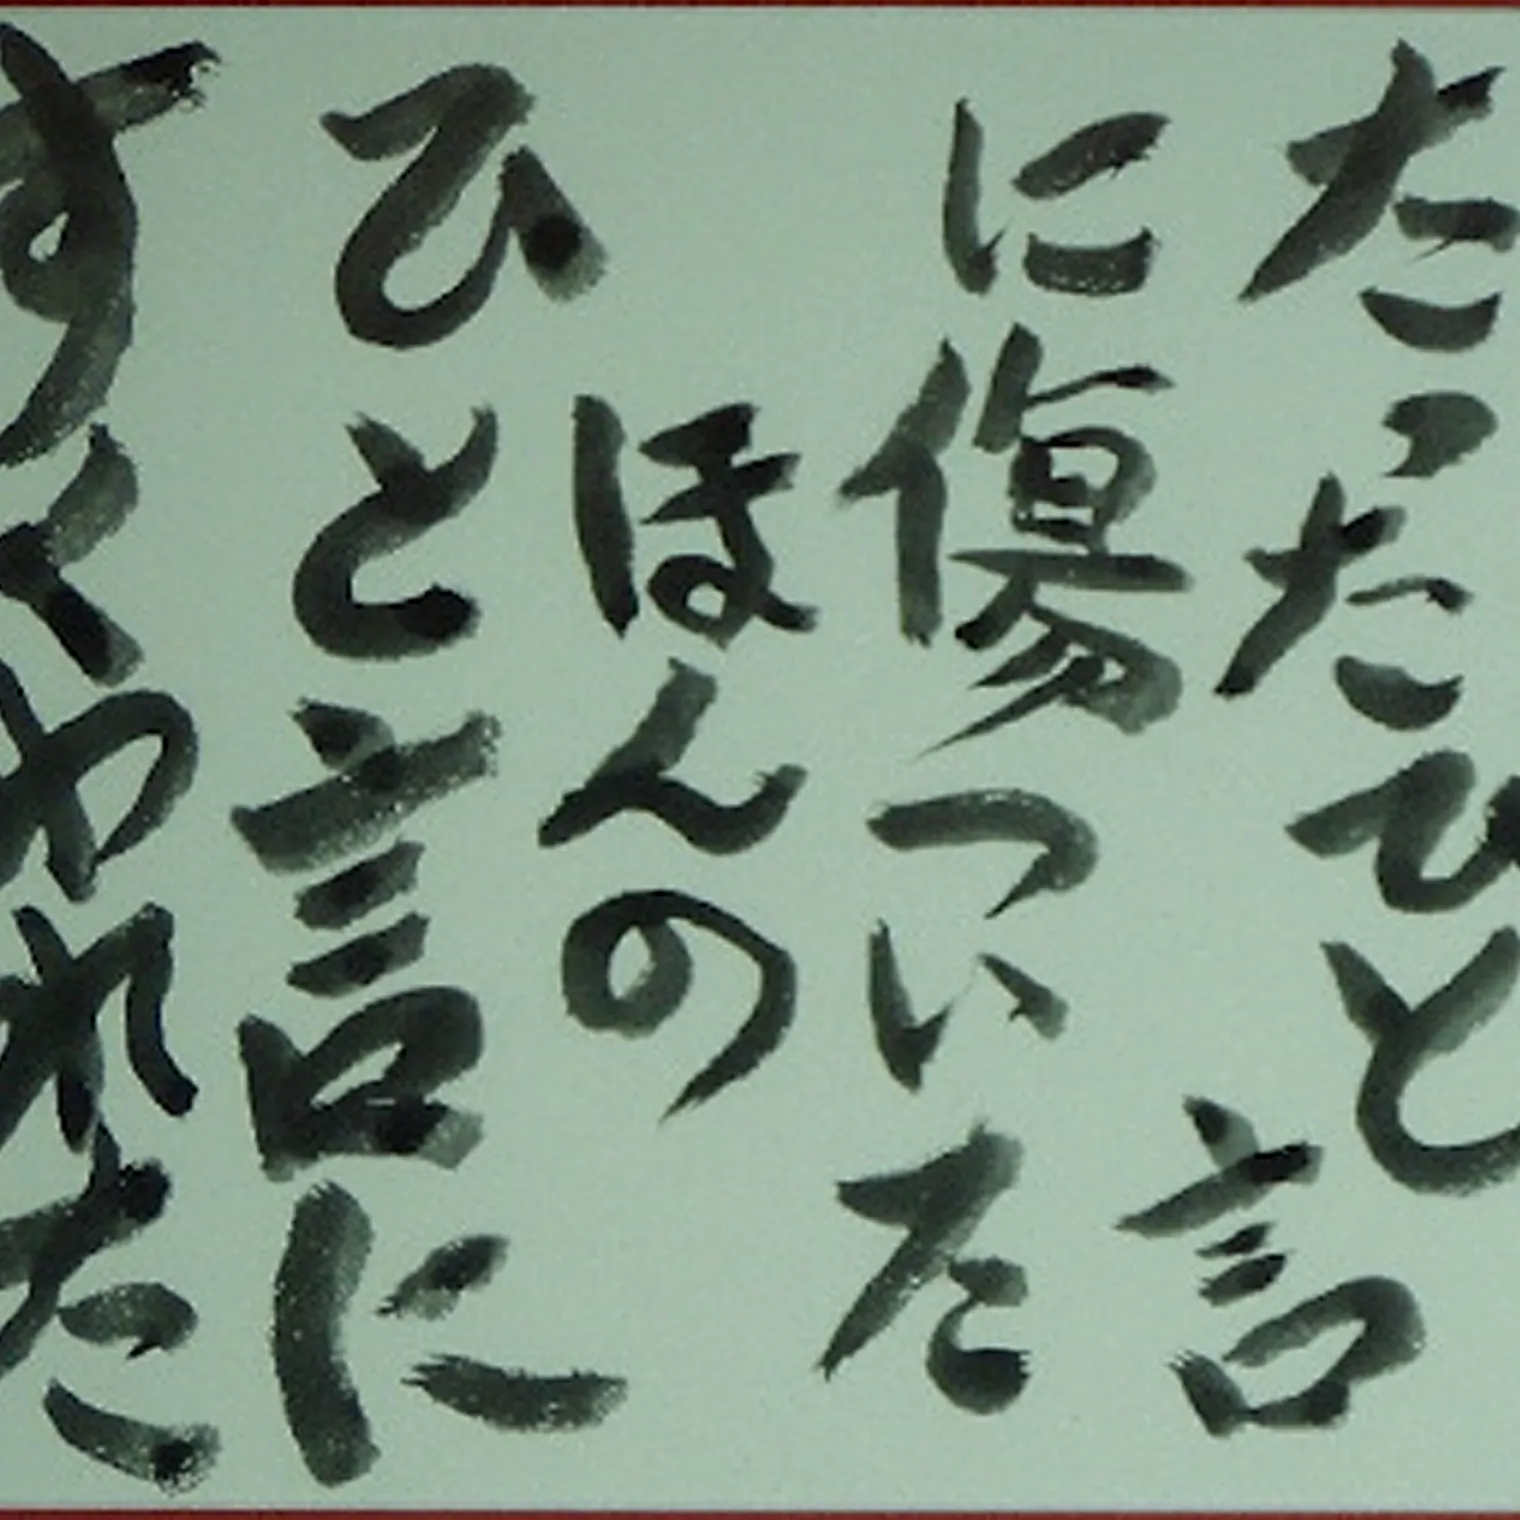 たったひと言
に傷ついた
ほんの
ひと言に
すくわれた